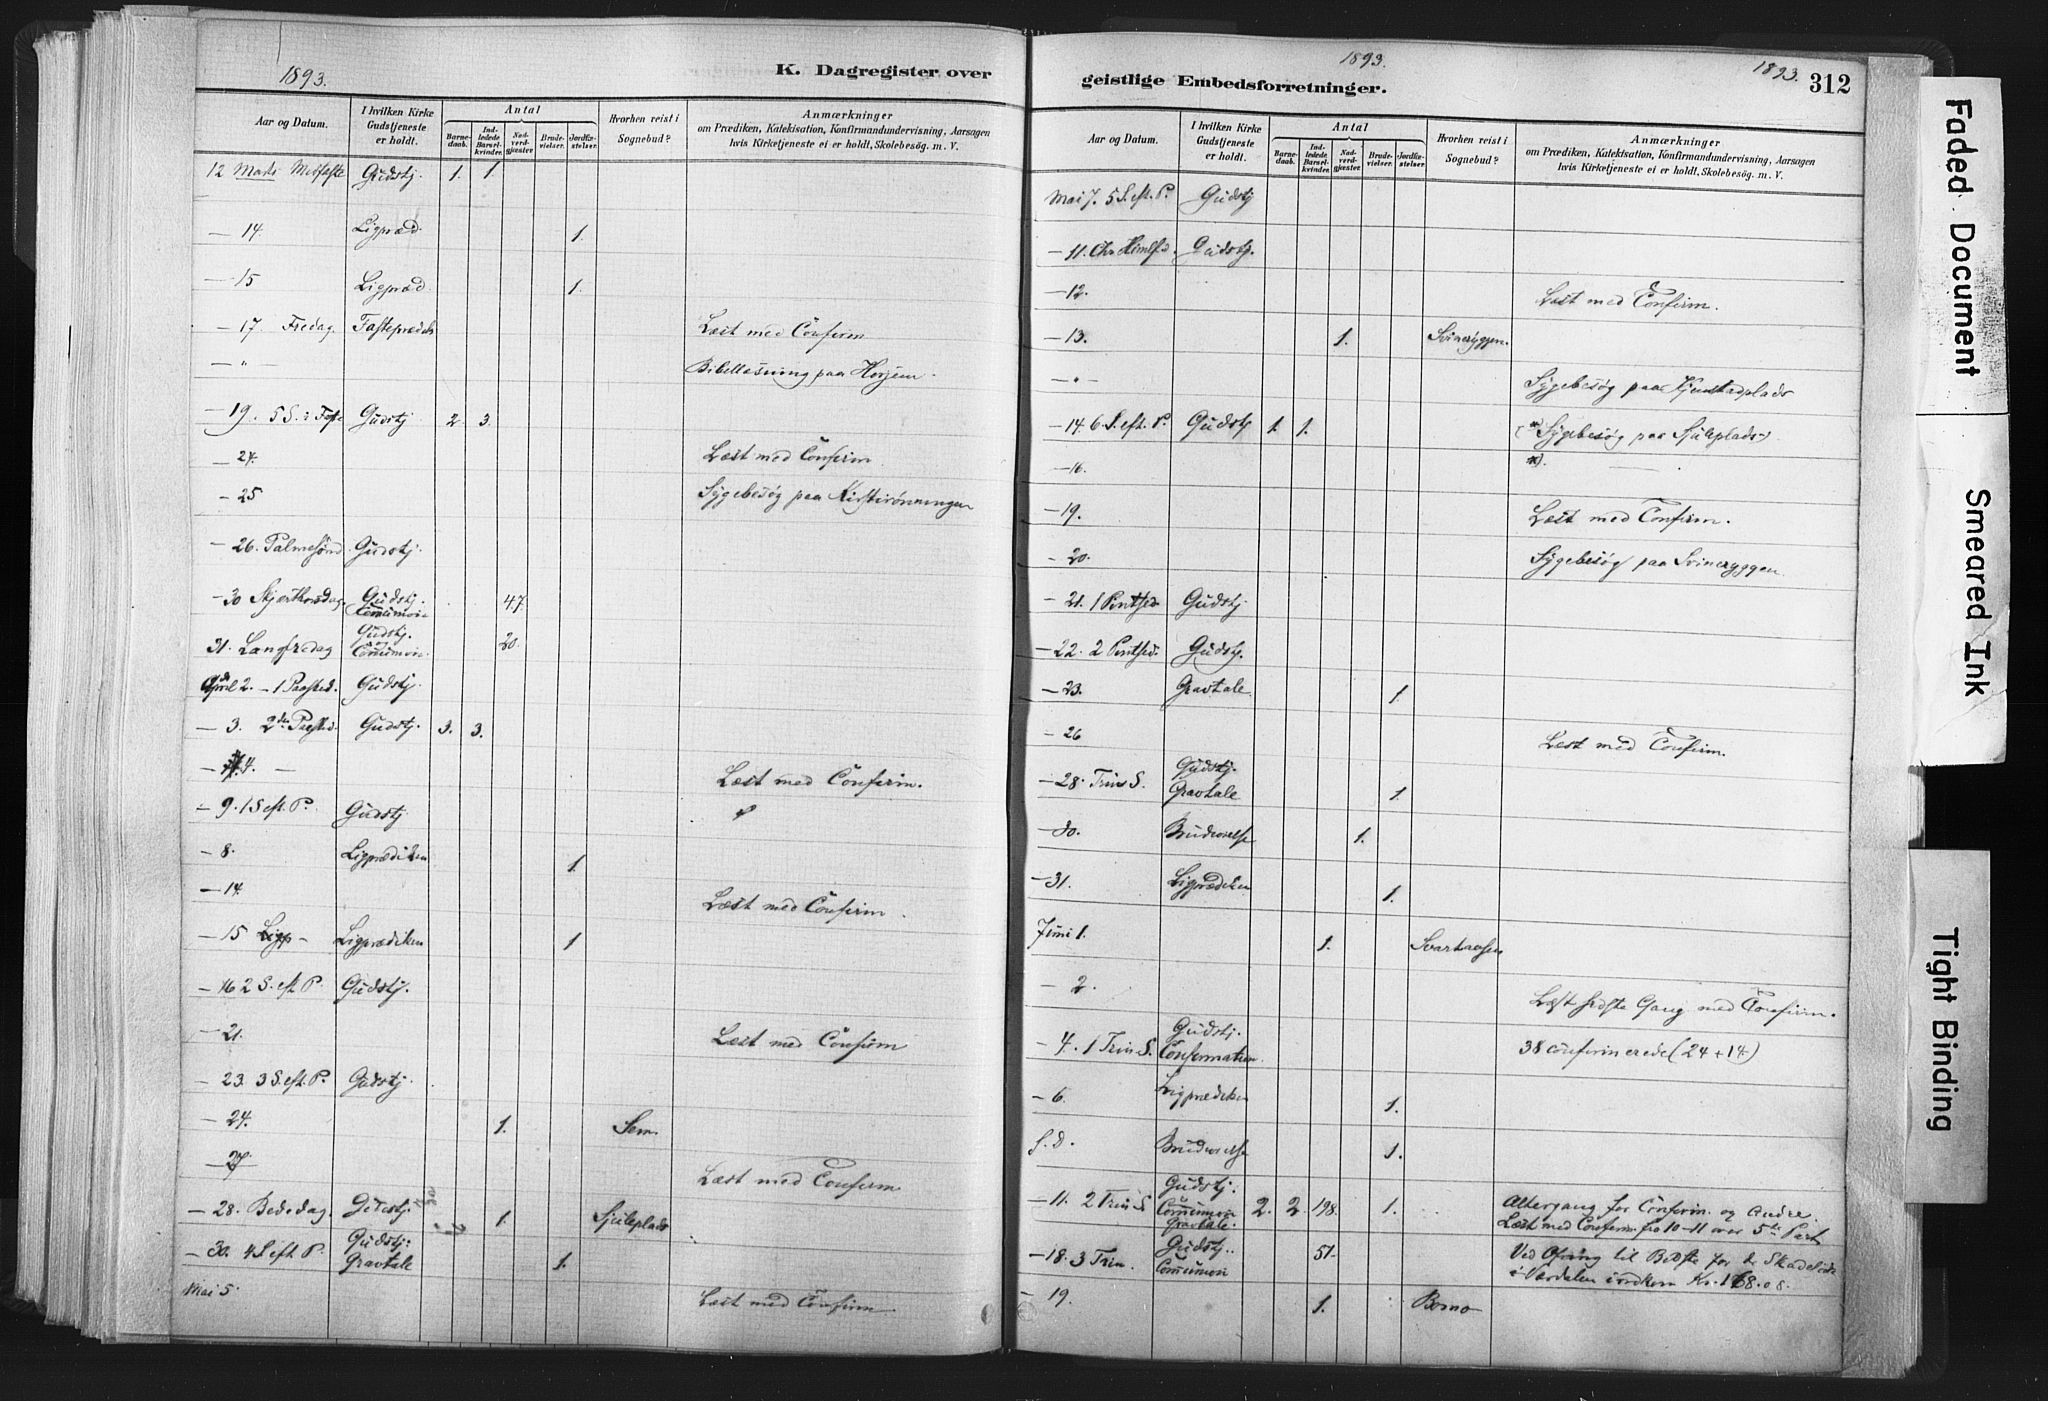 1893.
K. Dagregister over
Aar og Datum.
I hvilken Kirke Gudstjeneste er holdt.
Antal
Barne-daab.
Ind-ledede Barsel-kvinder.
Nad-verd-gjæster.
Brude-vielser.
Jordfæ-stelser.
Hvorhen reist i Sognebud?
Anmærkninger
om Prædiken, Katekisation, Konfirmandundervisning, Aarsagen
hvis Kirketjeneste ei er holdt, Skolebesög. m. V.
12 Marts Midfaste Gudstj. 1. 1.
— 14. Ligpræd. 1.
— 15 Ligpræd. 1.
— 17. Fredag. Fastepræd Læst med Confirm
— " — Bibellæsning paa
— 19. 5 S. i Faste Gudstj 2. 3.
— 24. Læst med Confirm
— 25 Sygebesøg paa Kirstirønningen
— 26. Palmesønd. Gudstj.
— 30 Skjærthorsdag. Gudstj. Communion 47.
31. Langfredag Gudstj. og Communion. 20.
April 2. — 1 Paasked. Gudstj.
— 3. 2den Paasked. Gudstj. 3. 3.
— 4. — Læst med Confirm.
— 9. 1 S. eft. P. Gudstj.
— 8. Ligprædiken 1.
— 14. Læst med Confirm.
— 15 Ligp — Ligprædiken 1.
— 16 2 S. eft. P. Gudstj.
— 21. Læst med Confirm
— 23. 3 S. eft. P. Gudstj.
— 24. 1. Sem.
— 27 Læst med Confirm
— 28. Bededag. Gudstj. 1. Sjuleplads
— 30. 4 S. eft. P. Gudstj. Gravtale 1.
Mai 5. Læst med Confirm.
1893.
1893.
geistlige Embedsforretninger.
312
Aar og Datum.
I hvilken Kirke Gudstjeneste er holdt.
Antal
Barne-daab.
Ind-ledede Barsel-kvinder.
Nad-verd-gjæster.
Brude-vielser.
Jordfæ-stelser.
Hvorhen reist i Sognebud?
Anmærkninger
om Prædiken, Katekisation, Konfirmandundervisning, Aarsagen
hvis Kirketjeneste ei er holdt, Skolebesög. m. V.
Mai 7. 5 S. eft. P. Gudstj
— 11. Chr. Himlf.d. Gudstj.
— 12. Læst med Confirm.
— 13. 1. Svineryggen.
— " — Sygebesøg paa
— 14. 6 S. eft. P. Gudstj 1. 1. Sygebesøg paa Sjuleplads
— 16.
— 19. Læst med Confirm.
— 20. Sygebesøg paa Svineryggen
— 21. 1 Pintsed. Gudstj
— 22. 2 Pintsed. Gudstj.
— 23. Gravtale 1.
— 26 Læst med Confirm.
— 28. Trin. S. Gudstj. Gravtale 1.
— 30. Brudevielse 1.
— 31. Ligprædiken 1.
Juni 1. 1. Svartaasen
— 2. Læst sidste Gang med Confirm.
— 4. 1 Trin. S. Gudstj. Confirmation. 38 confirmerede (24 + 14)
— 6. Ligprædiken 1.
S. D. Brudevielse 1.
— 11. 2 Trin. S Gudstj. Communion Gravtale. 2. 2. 198. 1. Altergang for Confirm. og Andre.
Læst med Confirm. fra 10-11 over 5te Part
— 18. 3 Trin. Gudstj. Communion 51. Ved Ofring til Bedste for de Skadelidte
i Værdalen indkom Kr. 168.08.
— 19. 1.
Faded Document
Smeared Ink
Tight Binding